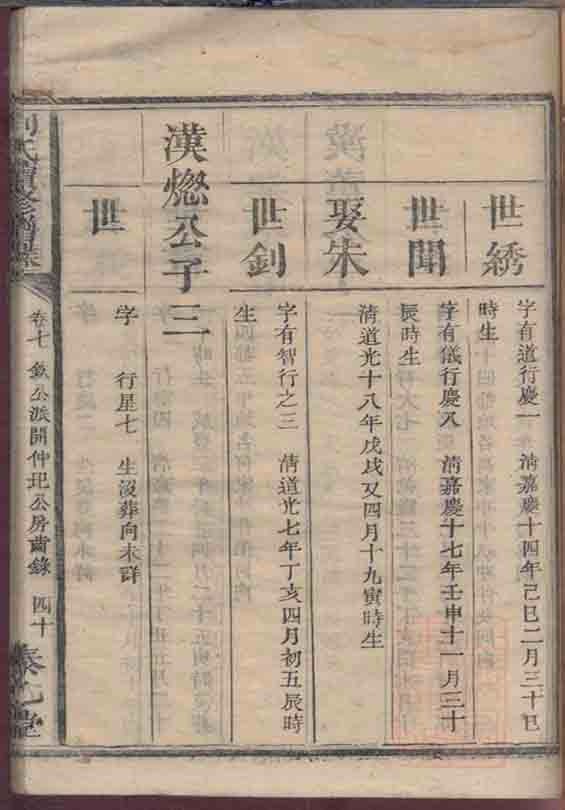 世綉
字有道行慶一 清嘉慶十四年己巳二月三十巳
時生
世聞
字有儀行慶八 清嘉慶十七年壬申十一月三十
辰時生
娶朱
清道光十八年戊戌又四月十九寅時生
世釗
字有智行之三 清道光七年丁亥四月初五辰時
生
漢燃公子三
世
字 行星七 生沒葬向未詳
氏續修
卷七 公派開仲玘公房齒錄 四十
堂